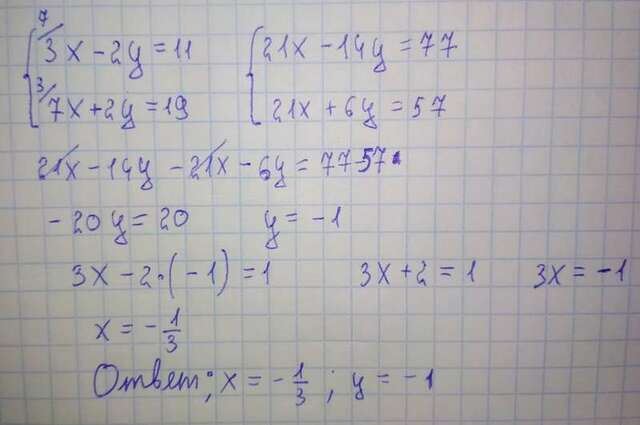 7/ 3x - 2y = 11    21x - 14y = 77
3/ 7x + 2y = 19    21x + 6y = 57
21x - 14y - 21x - 6y = 77-57
- 20y = 20    y = -1
3x - 2·(-1) = 1    3x + 2 = 1    3x = -1
x = -1/3
Ответ; x = -1/3 ; y = -1